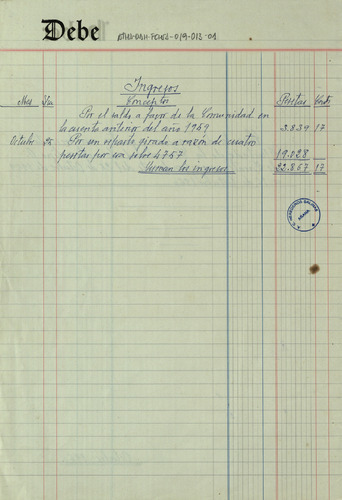 Debe
Ingresos
Mes Día Conceptos Pesetas Cents
Por el saldo a favor de la Comunidad en
la cuenta anterior del año 1959 3.839 17
Octubre Por un reparto girado a razón de cuatro
pesetas por sobre 4757 19.028
Suman los ingresos 22.867 17